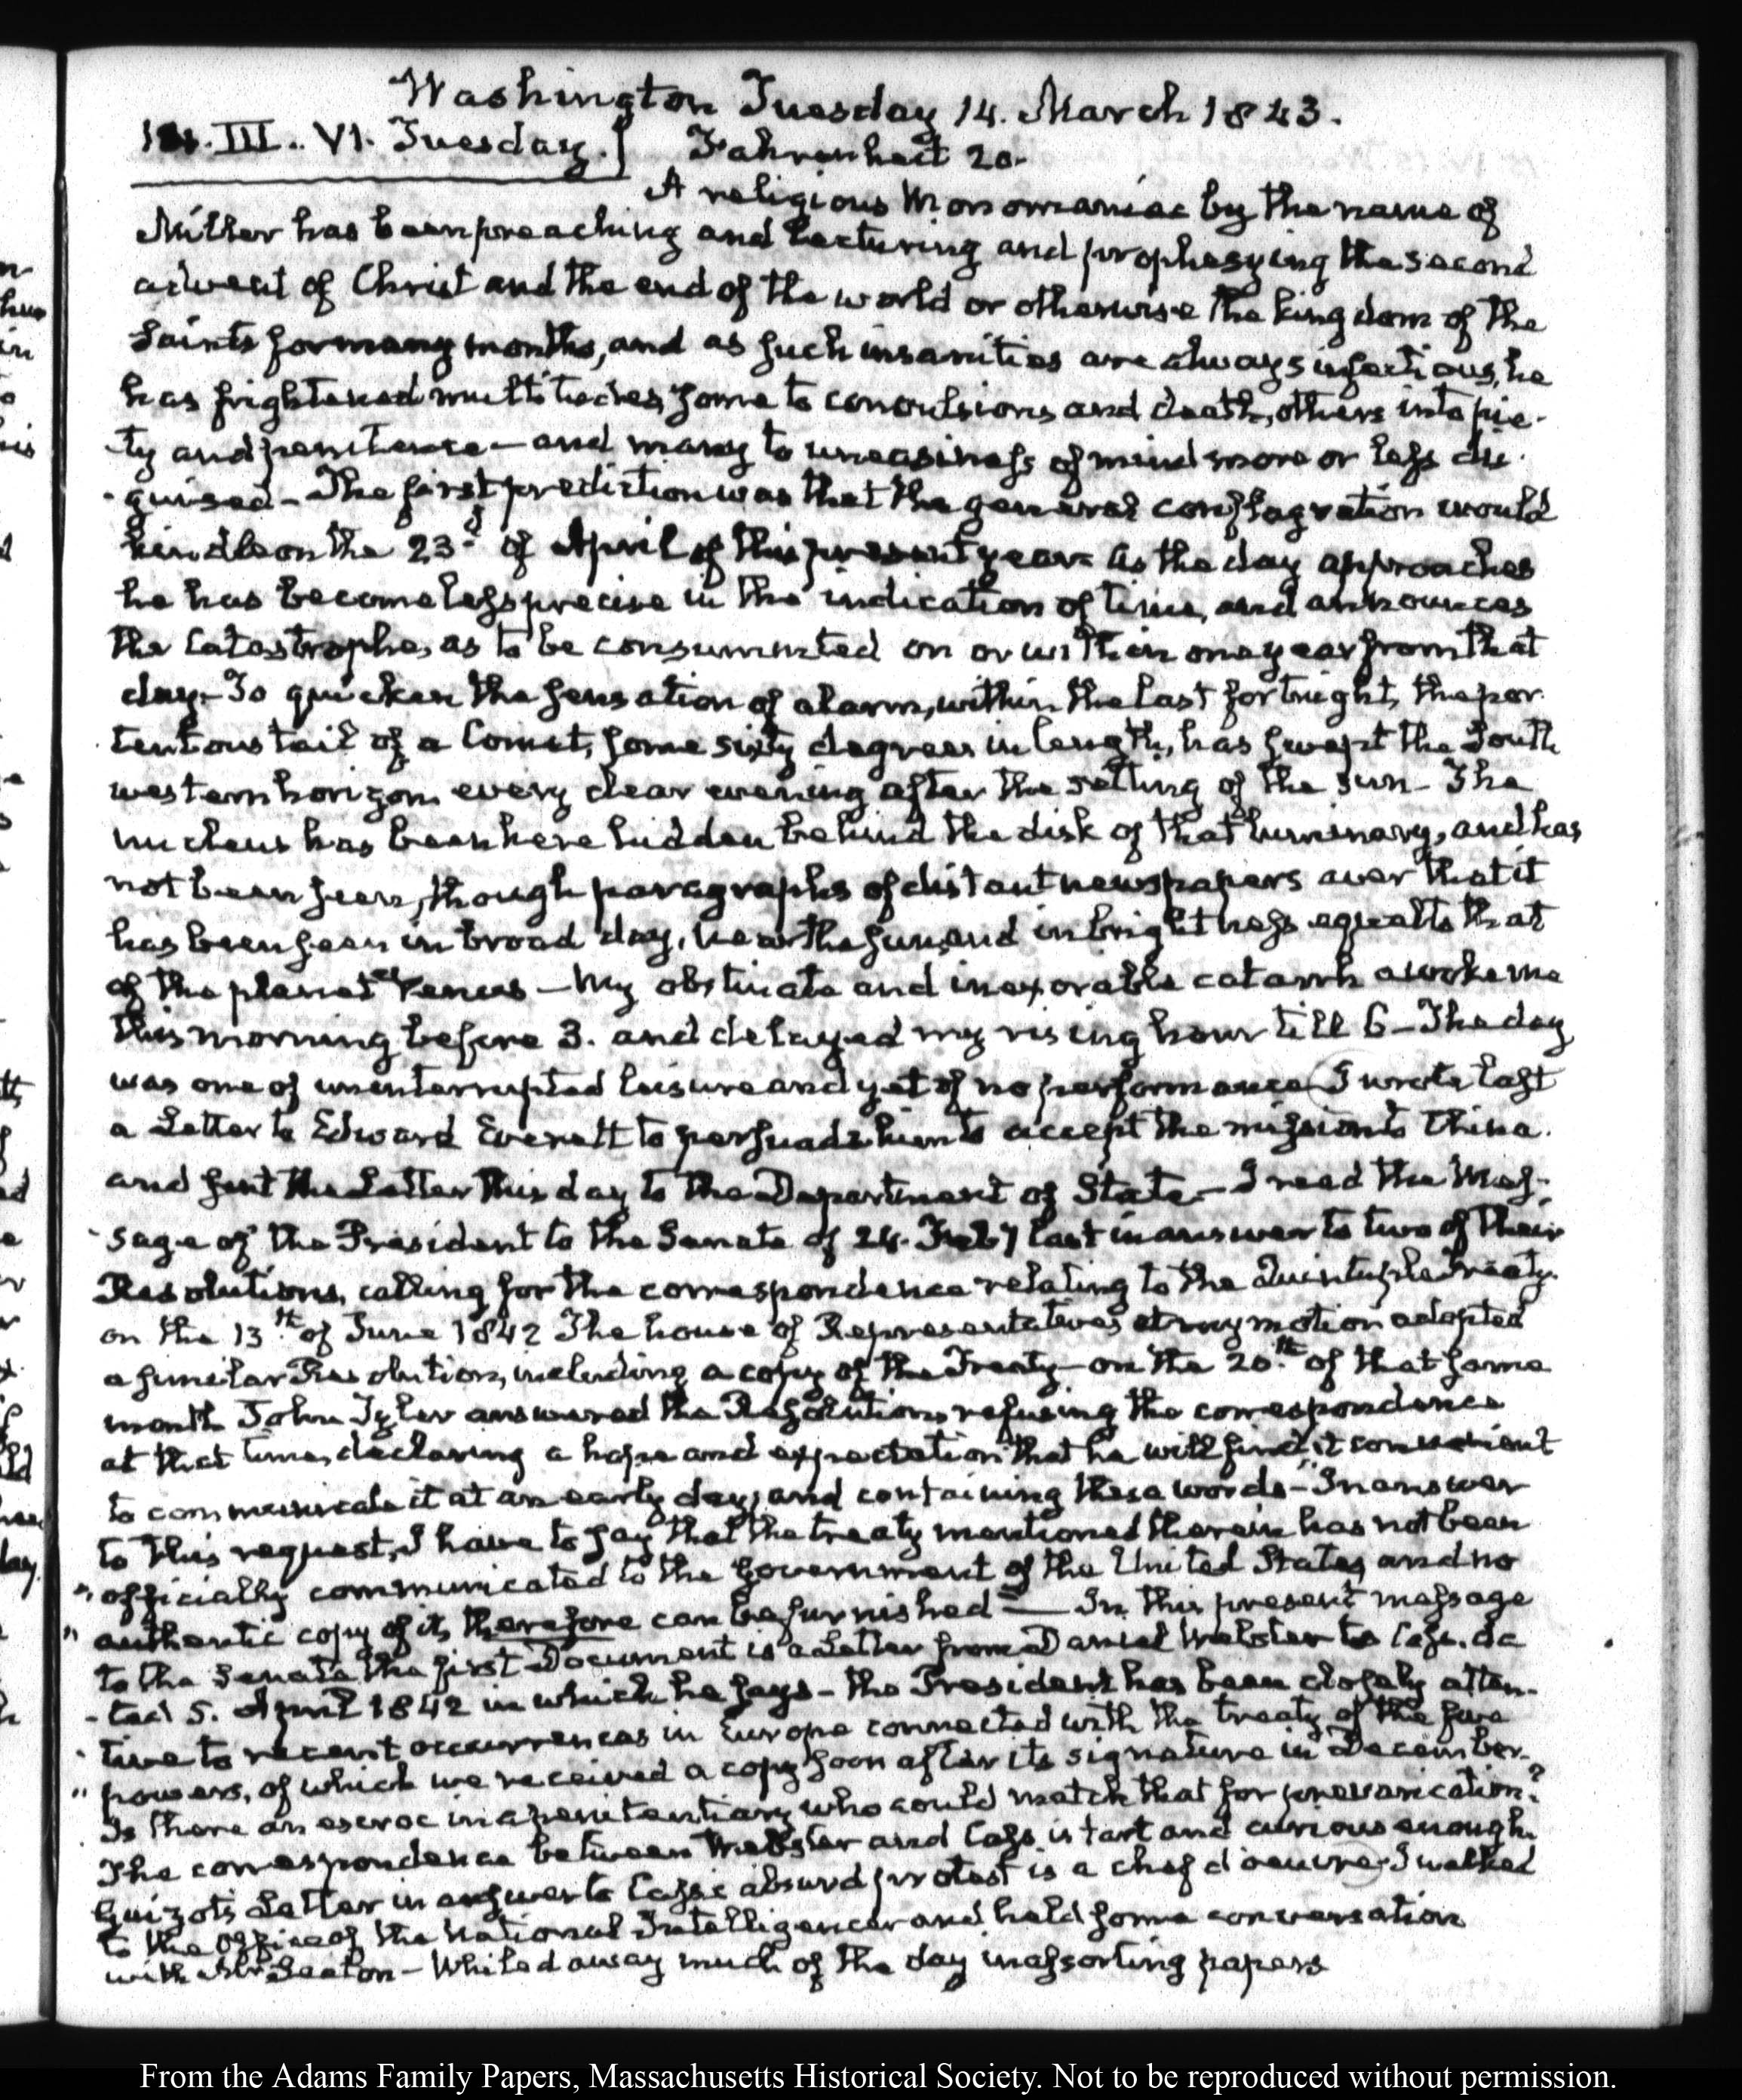 Washington Tuesday 14. March 1843.
14. III.. VI. Tuesday.] Fahrenheit 20.
A religious Monomaniac by the name of
Miller has been preaching and Lecturing and prophesying the second
advent of Christ and the end of the world or otherwise the kingdom of the
Saints for many months, and as such insanities are always infectious, he
has frightened multitudes, some to convulsions and death, others into pie-
-ty and penitence — and many to uneasiness of mind more or less dis-
-guised - The first prediction was that the general conflagration would
kindle on the 23d. of April of this present year. As the day approaches
he has become less precise in the indication of time, and announces
the Catastrophe, as to be consummated on or within one year from that
day. To quicken the sensation of alarm, within the last fortnight, the por-
tentous tail of a Comet, some sixty degrees in length, has swept the South
western horizon every clear evening after the setting of the sun - The
nucleus has been here hidden behind the disk of that luminary, and has
not been seen, though paragraphs of distant newspapers aver that it
has been seen in broad day, near the sun, and in brightness equal to that
of the planet Venus — My obstinate and inexorable catarrh awoke me
this morning before 3. and delayed my rising hour till 6 - The day
was one of uninterrupted leisure and yet of no performance. I wrote last
a Letter to Edward Everett to persuade him to accept the mission to China.
and sent the Letter this day to the Department of State. - I read the Mes-
-sage of the President to the Senate of 24. Feby last in answer to two of their
Resolutions, calling for the correspondence relating to the Quintuple Treaty.
on the 13th. of June 1842 The house of Representatives at my motion adopted
a similar Resolution, including a copy of the Treaty - on the 20th. of that same
month John Tyler answered the Resolution, refusing the correspondence
at that time, declaring a hope and expectation that he will find it convenient
to communicate it at an early day, and containing these words - "In answer
to this request, I have to say that the treaty mentioned therein has not been
" officially communicated to the government of the United States, and no
" authentic copy of it, therefore can be furnished" — In this present message
to the Senate the first Document is a Letter from Daniel Webster to Cass. da
-ted 5. April 1842 in which he says - the President has been closely atten-
-tive to recent occurrences in Europe connected with the treaty of the five
" powers, of which we received a copy soon after its signature in December.
Is there an escroc in a penitentiary who could match that for prevarication?
The correspondence between Webster and Cass is tart and curious enough.
Guizot's Letter in answer to Cass's absurd protest is a chef d'oeuvre. I walked
to the Office of the National Intelligencer and held some conversation
with Mr Seaton - Whiled away much of the day in assorting papers
From the Adams Family Papers, Massachusetts Historical Society. Not to be reproduced without permission.